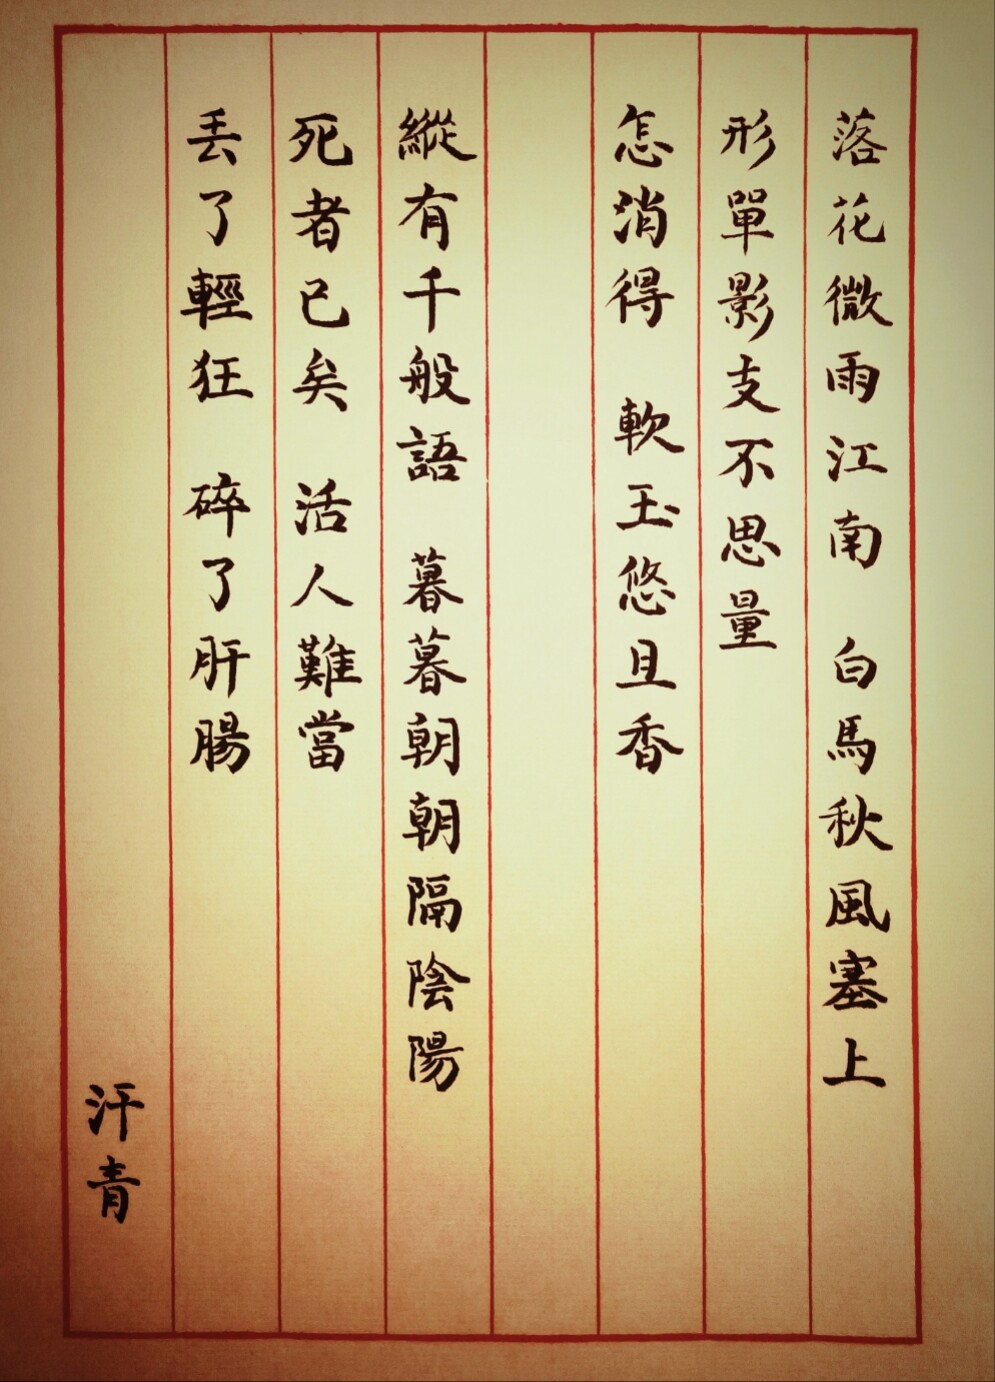 落花微雨江南　白馬秋風塞上
形單影支不思量
怎消得　軟玉悠且香
縱有千般語　暮暮朝朝隔陰陽
死者已矣　活人難當
丟了輕狂　碎了肝腸
汗青